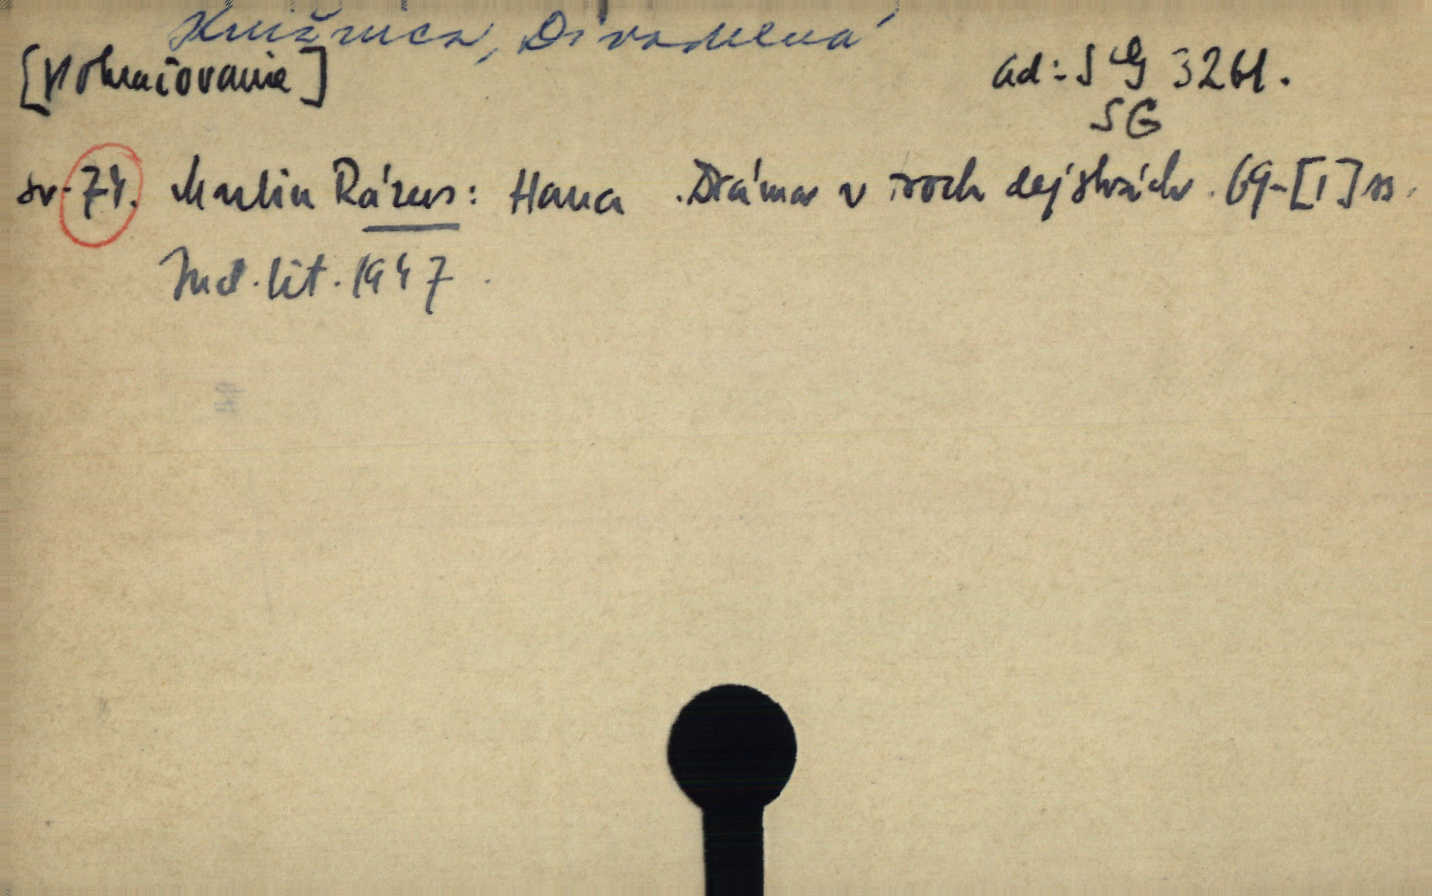 Knižnica, Divadelná
[Pokračovanie]
ad: SG 3261.
SG
sv. 74. Martin Rázus: Hana. Dráma v troch dejstvách. 69-[1] ss.
Ind. lit. 1947.